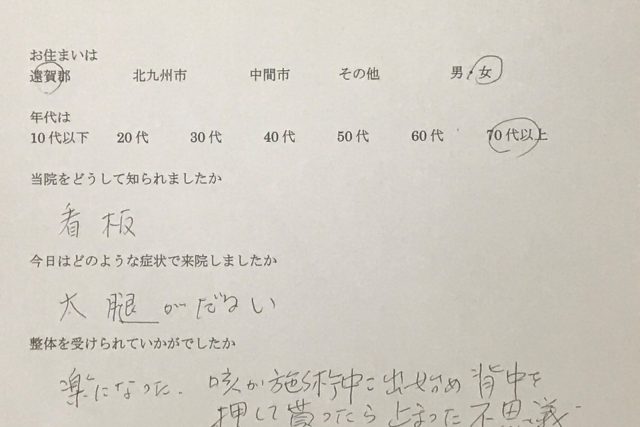 お住まいは
遠賀郡 北九州市 中間市 その他 男・女
年代は
10代以下 20代 30代 40代 50代 60代 70代以上
当院をどうして知られましたか
看板
今日はどのような症状で来院しましたか
太腿がだるい
整体を受けられていかがでしたか
楽になった。咳が施術中に出始め背中を
押して貰ったら止まった不思議